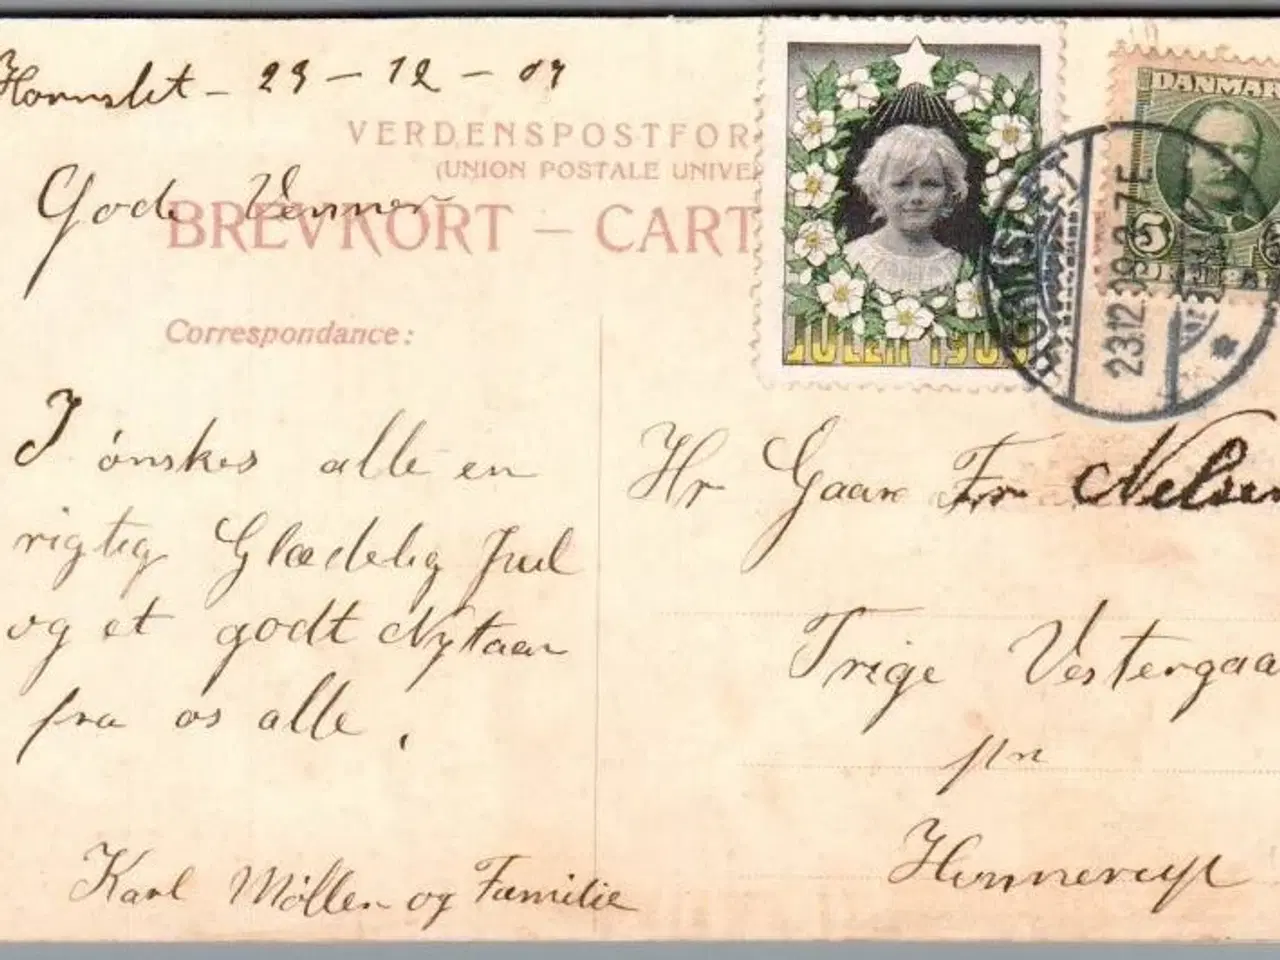 Hornslet - 23 - 12 - 09
VERDENSPOSTFOR
(UNION POSTALE UNIVE
BREVKORT – CART
Gode Venner
Correspondance:
I ønskes alle en
rigtig Glædelig Jul
og et godt Nytaar
fra os alle.
Karl Möller og Familie
JULEN 1909
DANMAR
5
HORNSLET
23.12.09.2-7E
Hr Gaar Fr Nelsen
Trige Vestergaa
pr